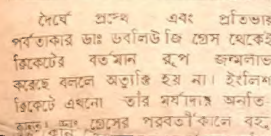 দৈর্ঘে প্রস্থে এবং প্রতিভায়
পর্বতাকার ডাঃ ডবলিউ জি গ্রেস থেকেই
ক্রিকেটের বর্তমান রূপ জন্মলাভ
করেছে বললে অত্যুক্তি হয় না। ইংলিশ
ক্রিকেটে এখনো তাঁর মর্যাদার
গ্রেসের পরবর্তীকালে বহু